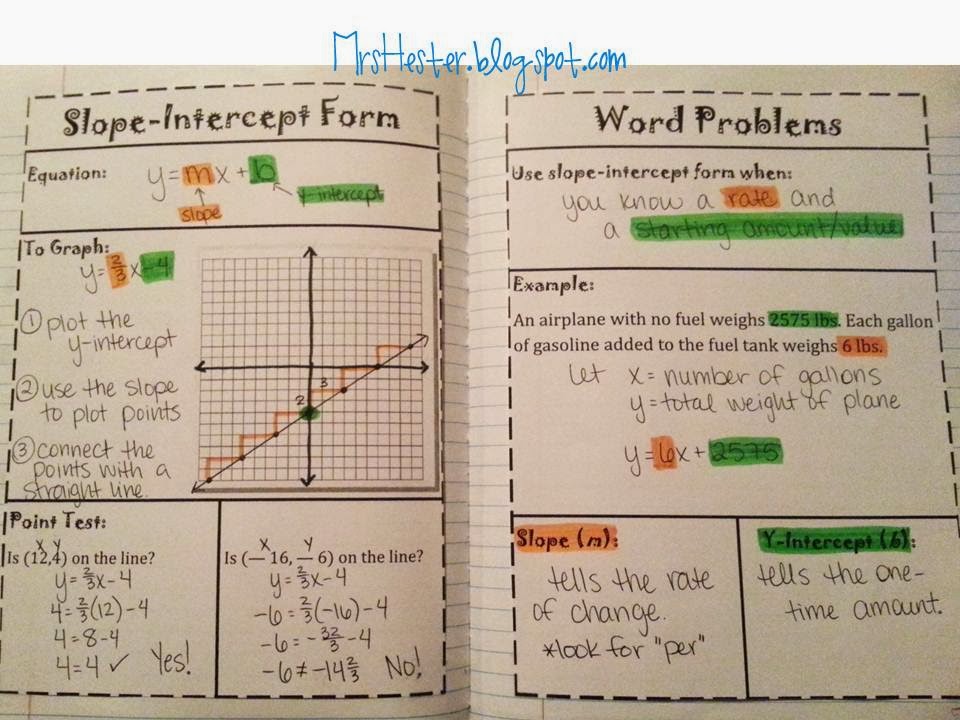 MrsHester.blogspot.com
Slope-Intercept Form
Equation: y=mx+b
slope
y-intercept
To Graph:
y=2/3x-4
① plot the
y-intercept
② use the slope
to plot points
③ connect the
points with a
straight line.
3
2
Point Test:
x y
Is (12,4) on the line?
y=2/3x-4
4=2/3(12)-4
4=8-4
4=4 ✓ Yes!
x y
Is (—16, — 6) on the line?
y=2/3x-4
-6=2/3(-16)-4
-6=-32/3-4
-6≠-14 2/3 No!
Word Problems
Use slope-intercept form when:
you know a rate and
a starting amount/value
Example:
An airplane with no fuel weighs 2575 lbs. Each gallon
of gasoline added to the fuel tank weighs 6 lbs.
Let x= number of gallons
y=total weight of plane
y=6x+2575
Slope (m):
tells the rate
of change.
*look for "per"
Y-Intercept (b):
tells the one-
time amount.